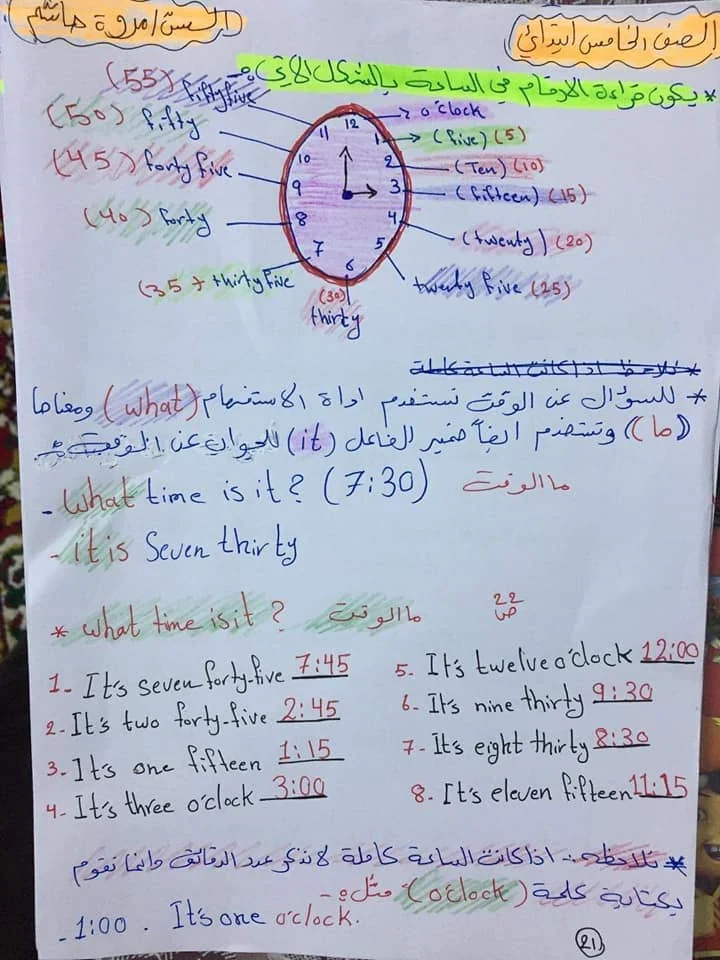 الست / مروة هاشم
الصف الخامس ابتدائي
* يكون قراءة الارقام في الساعة بالشكل الاتي :-
o'clock
(five) (5)
(Ten) (10)
(fifteen) (15)
(twenty) (20)
twenty five (25)
(30)
thirty
(35) thirty five
(40) forty
(45) forty five
(50) fifty
(55) fifty five
12
1
2
3
4
5
6
7
8
9
10
11
* نلاحظ اذا كانت الساعة كاملة
* للسؤال عن الوقت نستخدم اداة الاستفهام (what) ومعناها
(ما) ونستخدم ايضاً ضمير الفاعل (it) للجواب عن الوقت :-
- What time is it? (7:30) ما الوقت
- it is Seven thirty
* what time is it? ما الوقت
22
ص
1- It's seven forty-five 7:45
2- It's two forty-five 2:45
3- It's one fifteen 1:15
4- It's three o'clock 3:00
5. It's twelve o'clock 12:00
6- It's nine thirty 9:30
7- It's eight thirty 8:30
8- It's eleven fifteen 11:15
* نلاحظ :- اذا كانت الساعة كاملة لا نذكر عدد الدقائق وانما نقوم
بكتابة كلمة (o'clock) مثل :-
- 1:00 . It's one o'clock.
21